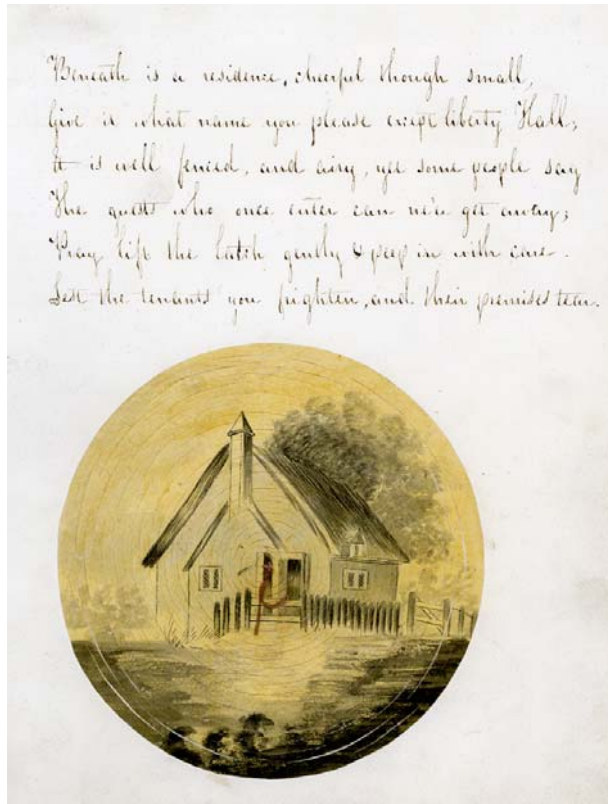 Beneath is a residence, cheerful though small,
Give it what name you please except liberty Hall;
It is well fenced, and airy, yet some people say
The guests who once enter can ne'er get away;
Pray lift the latch gently & peep in with care.
Lest the tenants you frighten, and their premises tear.